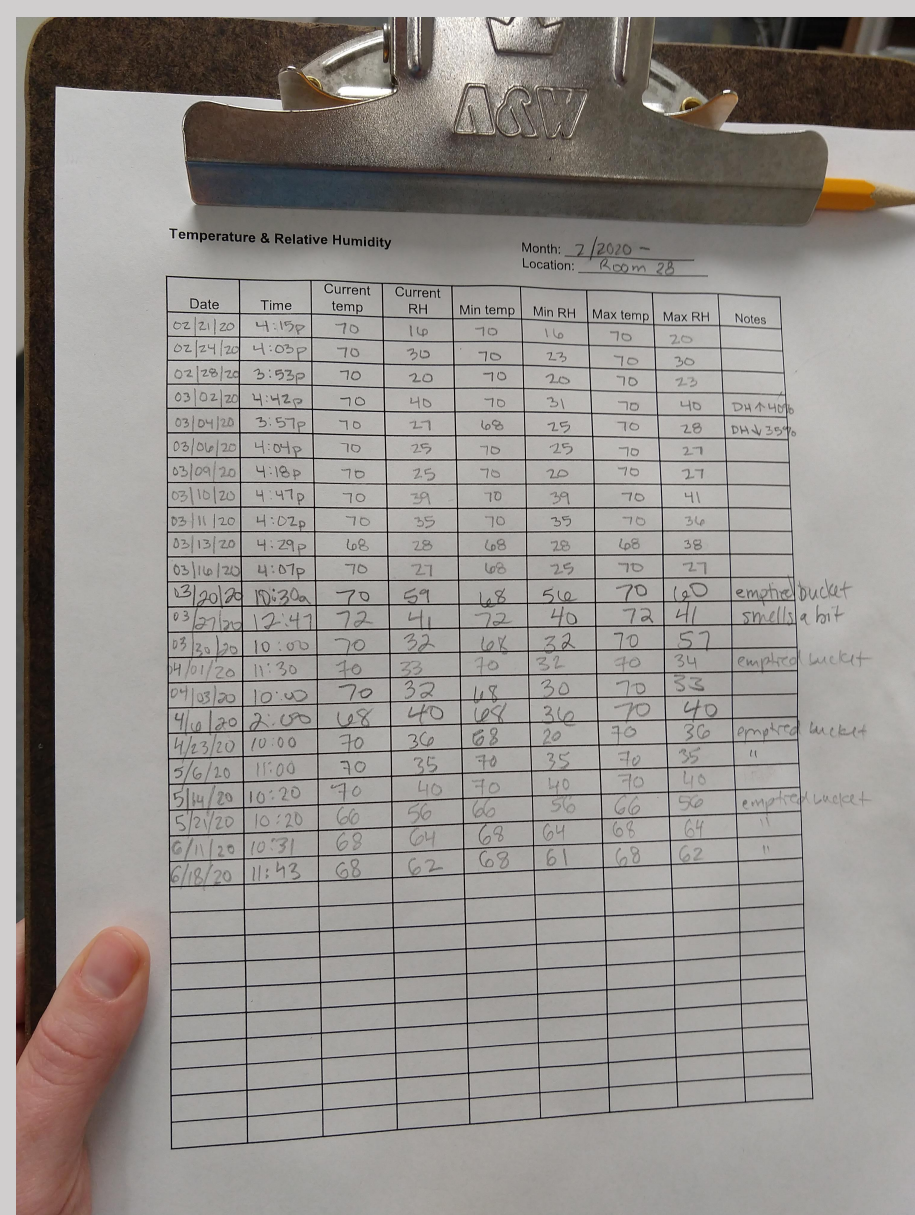 A&W
Temperature & Relative Humidity
Month: 2/2020 -
Location: Room 28
Date Time Current temp Current RH Min temp Min RH Max temp Max RH Notes
02/21/20 4:15p 70 16 70 16 70 20
02/24/20 4:03p 70 30 70 23 70 30
02/28/20 3:53p 70 20 70 20 70 23
03/02/20 4:42p 70 40 70 31 70 40 DH↑40%
03/04/20 3:57p 70 27 68 25 70 28 DH↓35%
03/06/20 4:04p 70 25 70 25 70 27
03/09/20 4:18p 70 25 70 20 70 27
03/10/20 4:47p 70 39 70 39 70 41
03/11/20 4:02p 70 35 70 35 70 36
03/13/20 4:29p 68 28 68 28 68 38
03/16/20 4:07p 70 27 68 25 70 27
03/20/20 10:30a 70 59 68 56 70 60 emptied bucket
03/27/20 12:47 72 41 72 40 72 41 smells a bit
03/30/20 10:00 70 32 68 32 70 57
04/01/20 11:30 70 33 70 32 70 34 emptied bucket
04/03/20 10:00 70 32 68 30 70 33
4/6/20 2:00 68 40 68 36 70 40
4/23/20 10:00 70 36 68 20 70 36 emptied bucket
5/6/20 11:00 70 35 70 35 70 35 "
5/14/20 10:20 70 40 70 40 70 40
5/21/20 10:20 66 56 66 56 66 56 emptied bucket
6/11/20 10:31 68 64 68 64 68 64 "
6/18/20 11:43 68 62 68 61 68 62 "